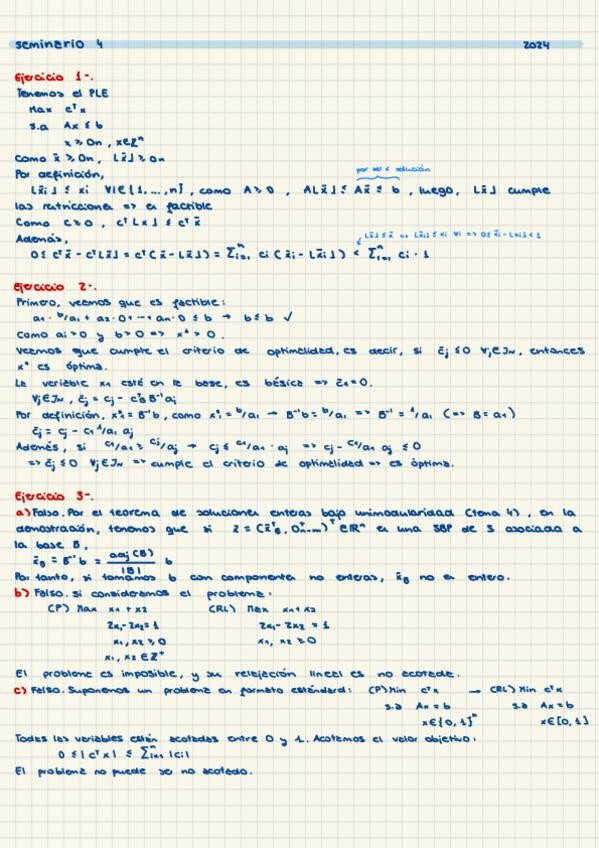 seminario 4 2024
Ejercicio 1-.
Tenemos el PLE
Max cᵀx
s.a Ax ≤ b
x ≥ 0n, x∈ℤⁿ
Como x̄ ≥ 0n, ⌊x̄⌋ ≥ 0n
Por definición,
por ser x̄ solución
⌊x̄i⌋ ≤ xi ∀i∈{1,...,n}, como A ≥ 0, A⌊x̄⌋ ≤ Ax̄ ≤ b, luego, ⌊x̄⌋ cumple
las restricciones => es factible
Como c ≥ 0, cᵀ⌊x⌋ ≤ cᵀx̄
Además,
⌊x̄⌋ ≤ x̄ => ⌊x̄i⌋ ≤ xi ∀i => 0 ≤ x̄i - ⌊xi⌋ < 1
0 ≤ cᵀx̄ - cᵀ⌊x̄⌋ = cᵀ(x̄ - ⌊x̄⌋) = Σⁿᵢ₌₁ ci (x̄i - ⌊x̄i⌋) < Σⁿᵢ₌₁ ci · 1
Ejercicio 2-.
Primero, veamos que es factible:
a₁ · b/a₁ + a₂ · 0 + ··· + an · 0 ≤ b → b ≤ b ✓
Como ai > 0 y b > 0 => x* > 0.
Veamos que cumple el criterio de optimalidad, es decir, si c̄j ≤ 0 ∀j∈JN, entonces
x* es óptima.
La variable x₁ está en la base, es básica => c̄₁ = 0.
∀j∈JN, c̄j = cj - cᵀB B⁻¹aj
Por definición, x*₁ = B⁻¹b, como x*₁ = b/a₁ → B⁻¹b = b/a₁ => B⁻¹ = 1/a₁ (=> B = a₁)
c̄j = cj - c₁ 1/a₁ aj
Además, si c₁/a₁ ≥ cj/aj → cj ≤ c₁/a₁ · aj => cj - c₁/a₁ aj ≤ 0
=> c̄j ≤ 0 ∀j∈JN => cumple el criterio de optimalidad => es óptima.
Ejercicio 3-.
a) Falso. Por el teorema de soluciones enteras bajo unimodularidad (tema 4), en la
demostración, tenemos que si z = (x̄ᵀB, 0ᵀn-m)ᵀ ∈ ℝⁿ es una SBP de S asociada a
la base B,
x̄B = B⁻¹b = adj(B)/|B| b
Por tanto, si tomamos b con componentes no enteras, x̄B no es entero.
b) Falso. si consideramos el problema:
(P) Max x₁ + x₂ (RL) Max x₁ + x₂
2x₁ - 2x₂ = 1 2x₁ - 2x₂ = 1
x₁, x₂ ≥ 0 x₁, x₂ ≥ 0
x₁, x₂ ∈ ℤ⁺
El problema es imposible, y su relajación lineal es no acotada.
c) Falso. Suponemos un problema en formato estándard: (P) Min cᵀx → (RL) Min cᵀx
s.a Ax = b s.a Ax = b
x∈{0,1}ⁿ x∈[0,1]
Todas las variables están acotadas entre 0 y 1. Acotamos el valor objetivo:
0 ≤ |cᵀx| ≤ Σⁿᵢ₌₁ |ci|
El problema no puede ser no acotado.